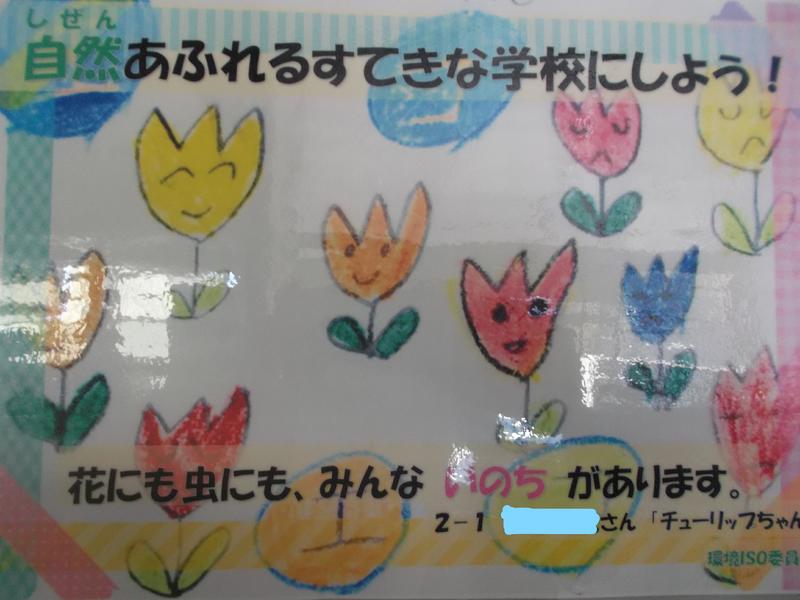 しぜん
自然あふれるすてきな学校にしよう！
花にも虫にも、みんな いのち があります。
2-1 さん 「チューリップちゃん
環境ISO委員